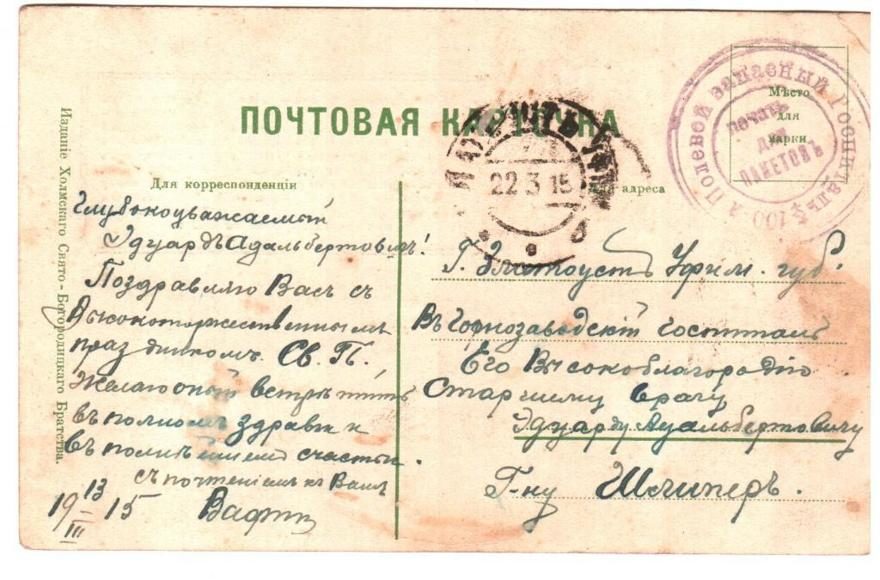 ПОЧТОВАЯ КАРТОЧКА
Мѣсто
для
марки
Полевой запасный госпиталь № 100
ПЕЧАТЬ
ДЛЯ
ПАКЕТОВЪ
22 3 15
Для корреспонденціи
Для адреса
Изданіе Холмскаго Свято-Богородицкаго Братства.
Глубокоуважаемый
Эдуардъ Адальбертовичъ!
Поздравляю Васъ съ
Высокоторжественнымъ
праздникомъ. Св. П.
Желаю встрѣтить
въ полномъ здравіи
въ счастьи.
съ почтеніемъ къ Вамъ
19 13/III 15
Г. Златоустъ Уфим. губ.
Въ Горнозаводскій госпиталь
Его Высокоблагородію
Старшему врачу
Эдуарду Адальбертовичу
Г-ну